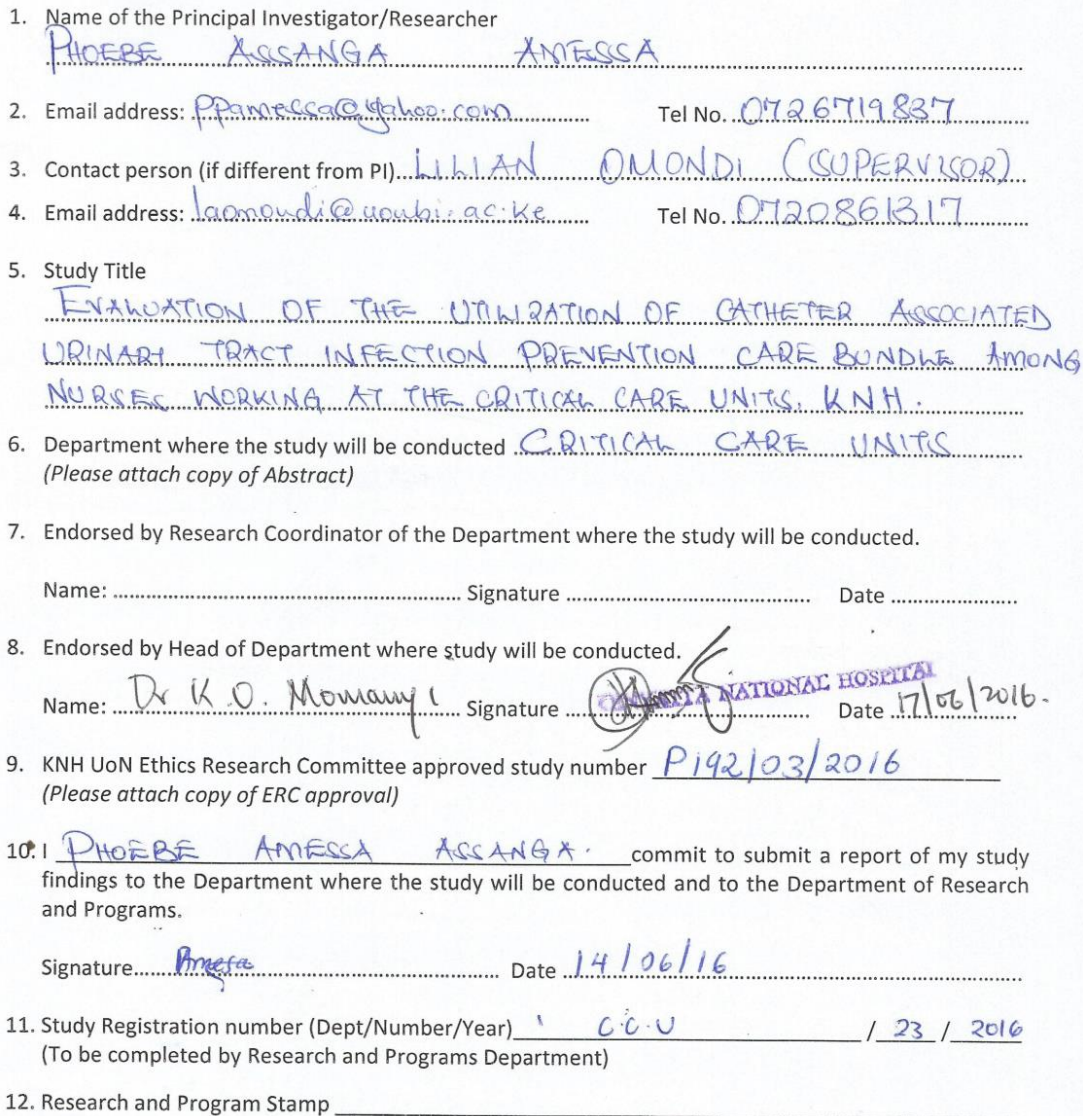 1. Name of the Principal Investigator/Researcher
PHOEBE ASSANGA AMESSA
2. Email address: ppamessa@yahoo.com Tel No. 0726719837
3. Contact person (if different from PI) LILIAN OMONDI (SUPERVISOR)
4. Email address: laomondi@uonbi.ac.ke Tel No. 0720861317
5. Study Title
EVALUATION OF THE UTILIZATION OF CATHETER ASSOCIATED
URINARY TRACT INFECTION PREVENTION CARE BUNDLE AMONG
NURSES WORKING AT THE CRITICAL CARE UNITS, KNH.
6. Department where the study will be conducted CRITICAL CARE UNITS
(Please attach copy of Abstract)
7. Endorsed by Research Coordinator of the Department where the study will be conducted.
Name: Signature Date
8. Endorsed by Head of Department where study will be conducted.
NATIONAL HOSPITAL
Name: Dr K.O. Momanyi Signature Date 17/06/2016.
9. KNH UoN Ethics Research Committee approved study number P192/03/2016
(Please attach copy of ERC approval)
10. I PHOEBE AMESSA ASSANGA. commit to submit a report of my study
findings to the Department where the study will be conducted and to the Department of Research
and Programs.
Signature Date 14/06/16
11. Study Registration number (Dept/Number/Year) C.C.U / 23 / 2016
(To be completed by Research and Programs Department)
12. Research and Program Stamp